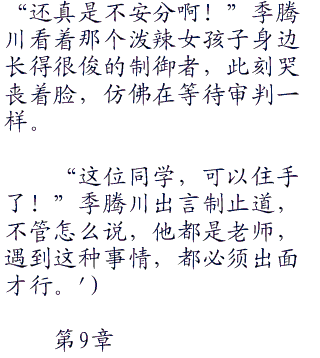 “还真是不安分啊！”季腾
川看着那个泼辣女孩子身边
长得很俊的制御者，此刻哭
丧着脸，仿佛在等待审判一
样。
“这位同学，可以住手
了！”季腾川出言制止道，
不管怎么说，他都是老师，
遇到这种事情，都必须出面
才行。')
第9章